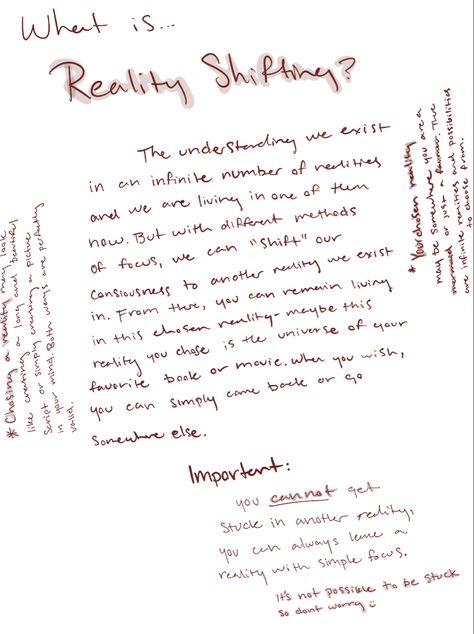 What is...
Reality Shifting?
The understanding we exist
in an infinite number of realities
and we are living in one of them
now. But with different methods
of focus, we can "shift" our
consiousness to another reality we exist
in. From there, you can remain living
in this chosen reality - maybe this
reality you chose is the universe of your
favorite book or movie. When you wish,
you can simply come back or go
somewhere else.
* Your chosen reality
may be somewhere you are a
mermaid or just a farmer. There
are infinite realities and possibilities
to choose from.
* Chosing a reality may look
like creating a long and beautiful
script or simply creating a picture
in your mind. Both ways are perfectly
valid.
Important:
you cannot get
stuck in another reality,
you can always leave a
reality with simple focus.
it's not possible to be stuck
so dont worry :)